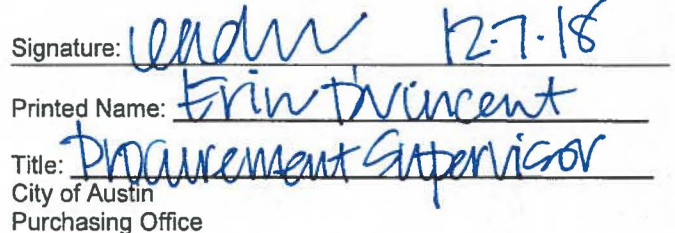 Signature: 12.7.18
Printed Name: Erin D'Vincent
Title: Procurement Supervisor
City of Austin
Purchasing Office